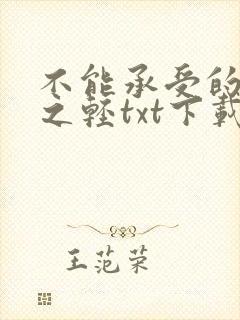 不能承受的
之轻txt下载
王范荣